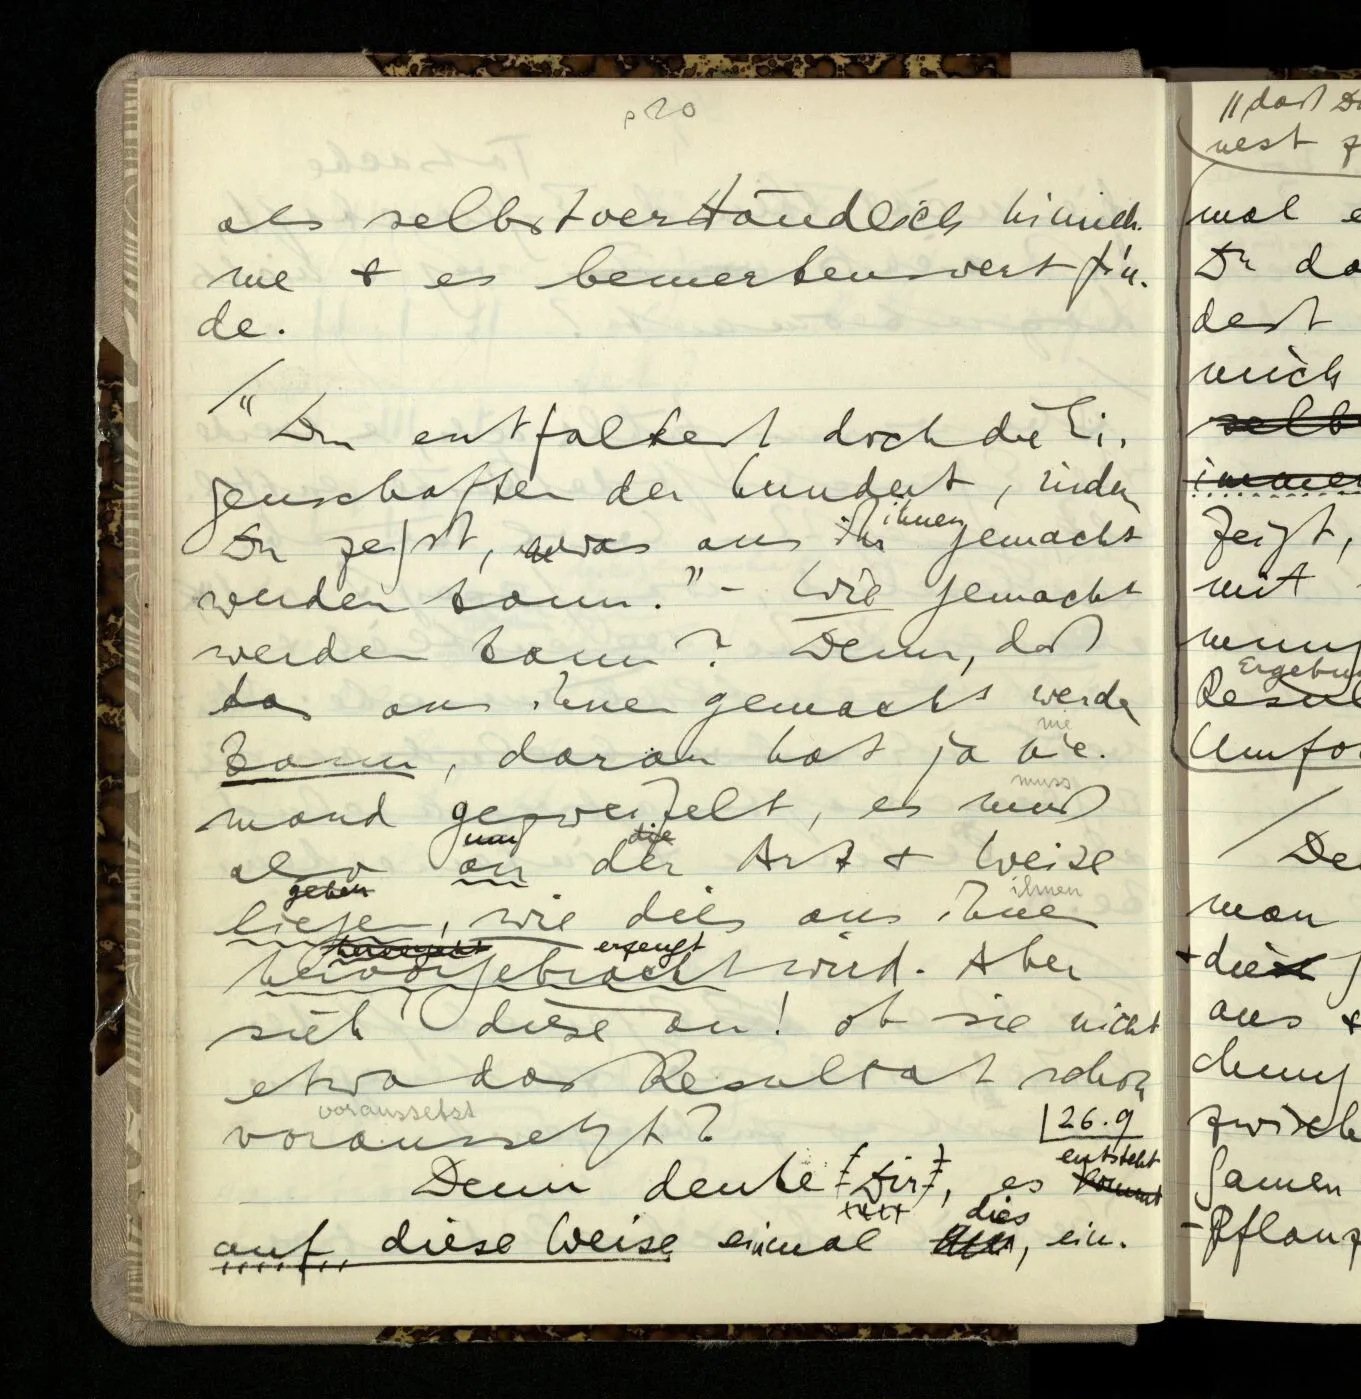 p20
als selbstverständlich hinneh-
me & es bemerkenswert fin-
de.
/
"Du entfaltest doch die Ei-
genschaften der hundert, indem
ihnen
Du zeigst, was aus ihr gemacht
werden kann." – Wie gemacht
werden kann? Denn, daß
das aus ihnen gemacht werden
nie
kann, daran hat ja nie-
muss
mand gezweifelt, es muß
nun die
also an der Art & Weise
gehen ihnen
liegen, wie dies aus ihnen
erzeugt
hervorgebracht wird. Aber
sieh' diese an! ob sie nicht
etwa das Resultat schon
voraussetzt
voraussetzt?
|26.9
entsteht
Denn denke Dir, es kommt
dies
auf diese Weise einmal, ein-
"daß Du
nest
mal
Du da
dest
mich
selb
immer
zeigt,
mit
nung
Ergebnis
Resul
Umfo
/
De
man
+ die
aus &
chung
zwisch
samen
-Pflanz